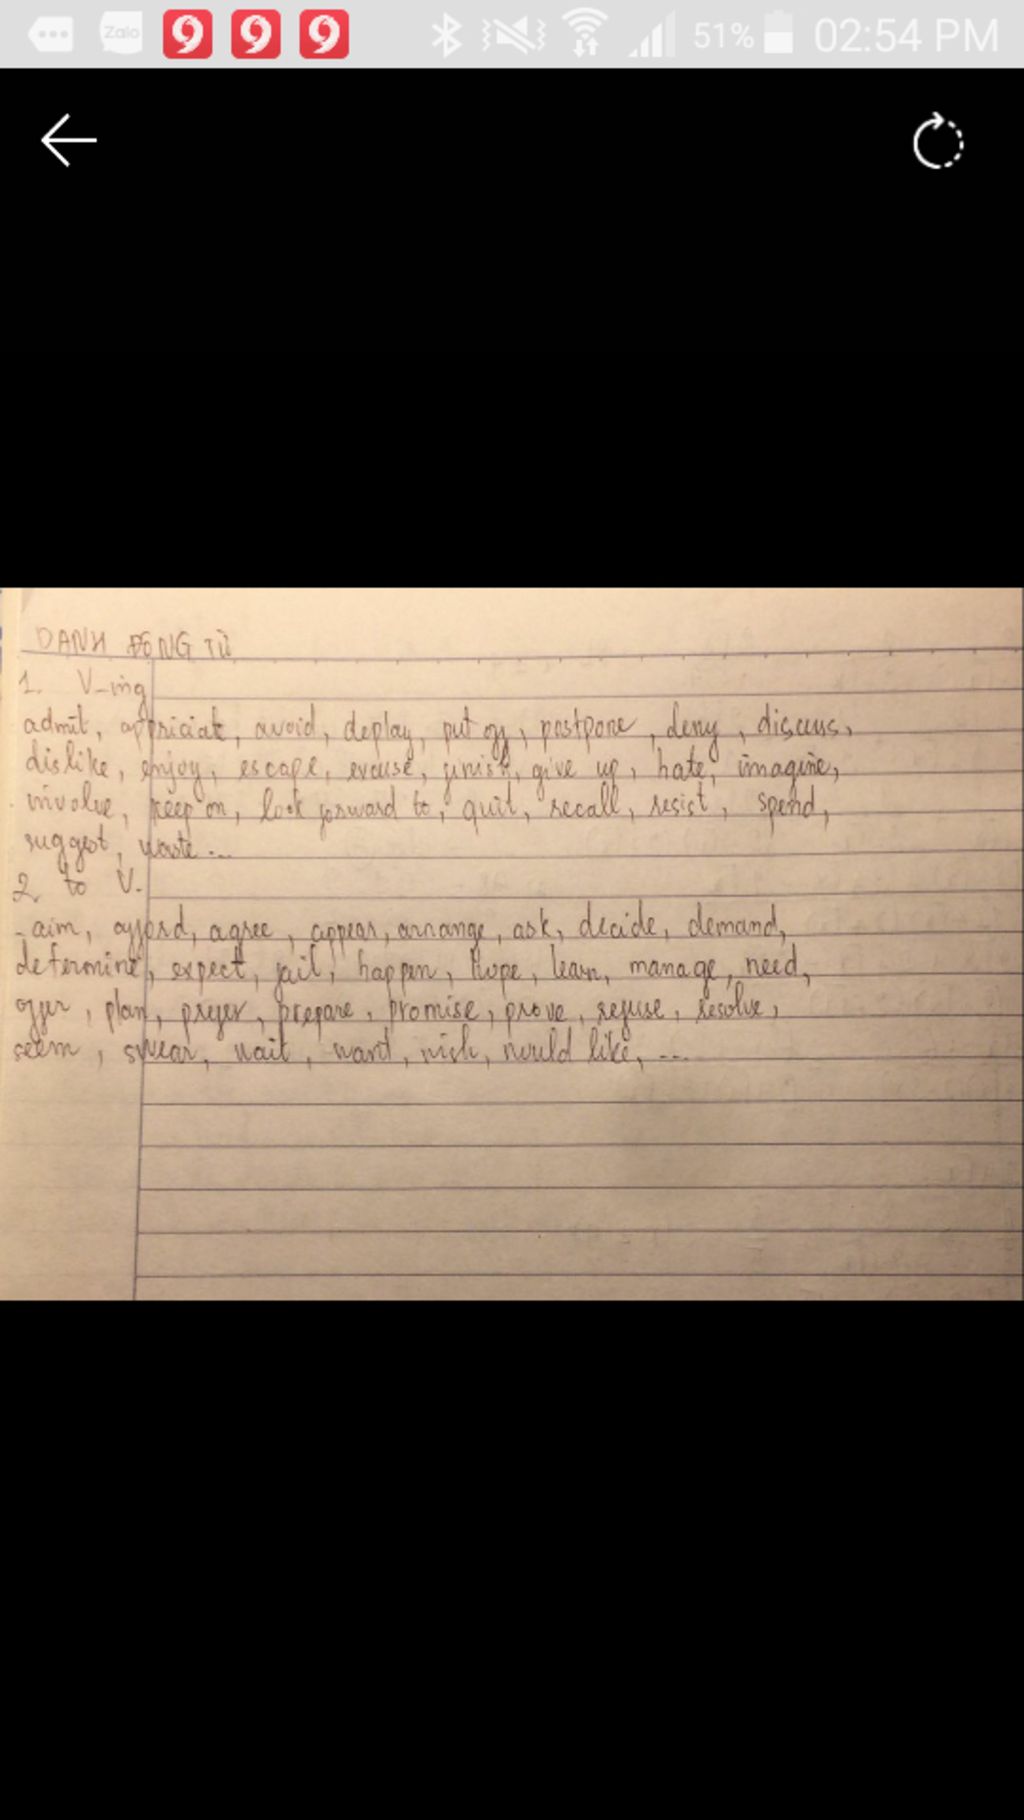 Zalo 51% 02:54 PM
DANH ĐỘNG TỪ
1. V-ing
admit, appriciat, avoid, deplay, put off, postpone, deny, discuss,
dislike, enjoy, escape, excuse, finish, give up, hate, imagine,
involve, keep on, look forward to, quit, recall, resist, spend,
suggest, waste ...
2. to V.
- aim, afford, agree, appear, arrange, ask, decide, demand,
determine, expect, fail, happen, hope, learn, manage, need,
offer, plan, prefer, prepare, promise, prove, refuse, resolve,
seem, swear, wait, want, wish, would like, ...